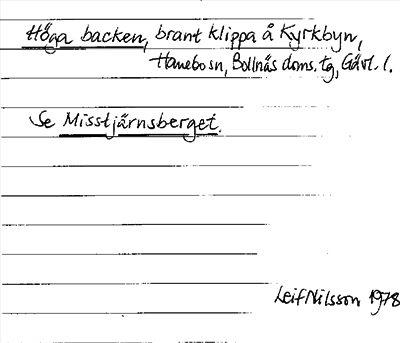 Höga backen, brant klippa å Kyrkbyn,
Hanebosn, Bollnäs doms.tg, Gävl. l.
Se Misstjärnsberget.
Leif Nilsson 1978